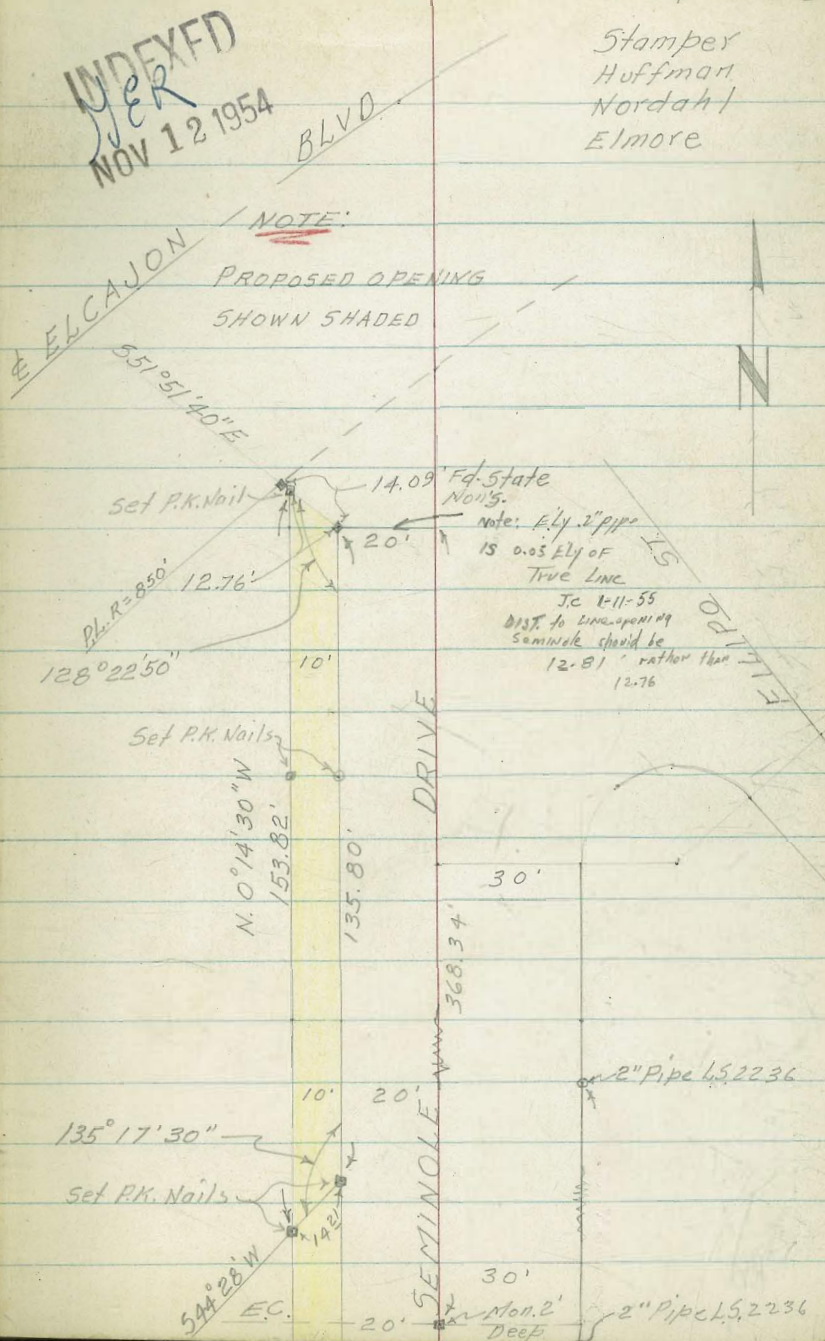 INDEXED
JER
NOV 12 1954
Stamper
Huffman
Nordahl
Elmore
BLVD.
℄ ELCAJON
NOTE:
PROPOSED OPENING
SHOWN SHADED
S51°51'40"E
N
Set P.K. Nail
14.09'
Fd. State
Mon's.
20'
Note: Ely 2" pipe
is 0.05 Ely of
True Line
J.C 1-11-55
DIST. to Line opening
Seminole should be
12.81' rather than
12.76
12.76'
P.L. R=850'
128°22'50"
10'
ST.
Set P.K. Nails
DRIVE
N. 0°14'30"W
153.82'
135.80'
30'
368.34'
2" Pipe L.S. 2236
10'
20'
135°17'30"
Set P.K. Nails
14.21
SEMINOLE
S44°28'W
E.C.
20'
30'
Mon. 2'
Deep
2" Pipe L.S. 2236